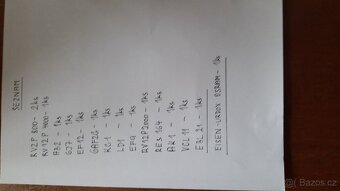 SEZNAM
RV2P 800 - 2ks
RV12P 4000 - 1ks
- 1ks
6J7 - 1ks
EF12 - 1ks
6AF26 - 1ks
KC1 - 1ks
LD1 - 1ks
EF9 - 1ks
RV12P2000 - 1ks
RES 164 - 1ks
AR1 - 1ks
VCL 11 - 1ks
EBL 21 - 1ks
EISEN-URDOX OSRAM - 1ks
Bazoš.cz